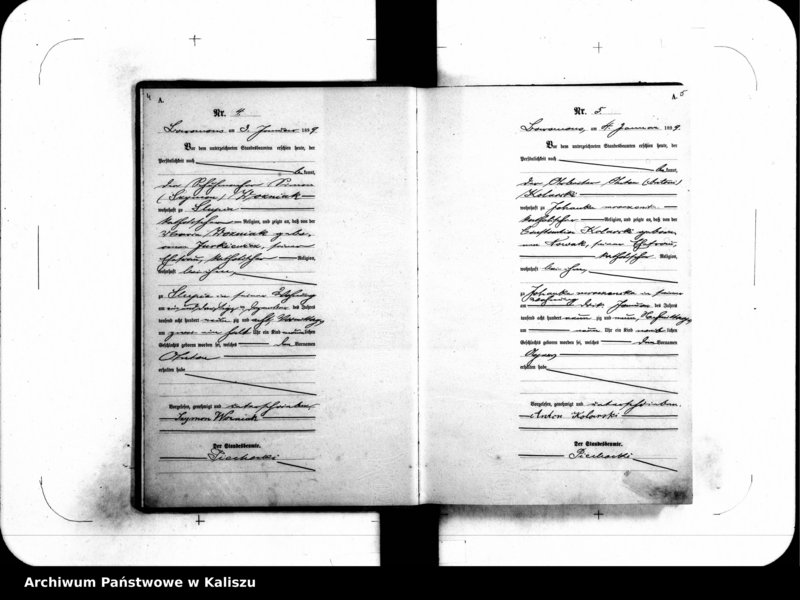 4
A.
Nr. 4
am 3. Januar 1899.
Vor dem unterzeichneten Standesbeamten erschien heute, der
Persönlichkeit nach
bekannt,
der Simon
(Szymon) Wozniak
wohnhaft zu Slupia
katholischer Religion, und zeigte an, daß von der
Wozniak gebo-
seiner
Ehefrau, katholischer Religion,
wohnhaft bei ihm,
zu Slupia in seiner Wohnung
am Dezember des Jahres
tausend acht hundert neunzig und acht, Vormittags
um ein halb Uhr ein Kind männlichen
Geschlechts geboren worden sei, welches den Vornamen
Anton
erhalten habe
Vorgelesen, genehmigt und unterschrieben.
Szymon Wozniak
Der Standesbeamte.
Piechocki
A. 5
Nr. 5
am 4. Januar 1899.
Vor dem unterzeichneten Standesbeamten erschien heute, der
Persönlichkeit nach
bekannt,
der Arbeiter Anton (Antoni)
Kolarski
wohnhaft zu
katholischer Religion, und zeigte an, daß von der
Kolarski geboren
Nowak, seiner Ehefrau,
katholischer Religion,
wohnhaft bei ihm,
zu in seiner
Wohnung
am Januar des Jahres
tausend acht hundert neunzig und neun,
um neun Uhr ein Kind weiblichen
Geschlechts geboren worden sei, welches den Vornamen
Agnes
erhalten habe
Vorgelesen, genehmigt und unterschrieben.
Anton Kolarski
Der Standesbeamte.
Piechocki
Archiwum Państwowe w Kaliszu